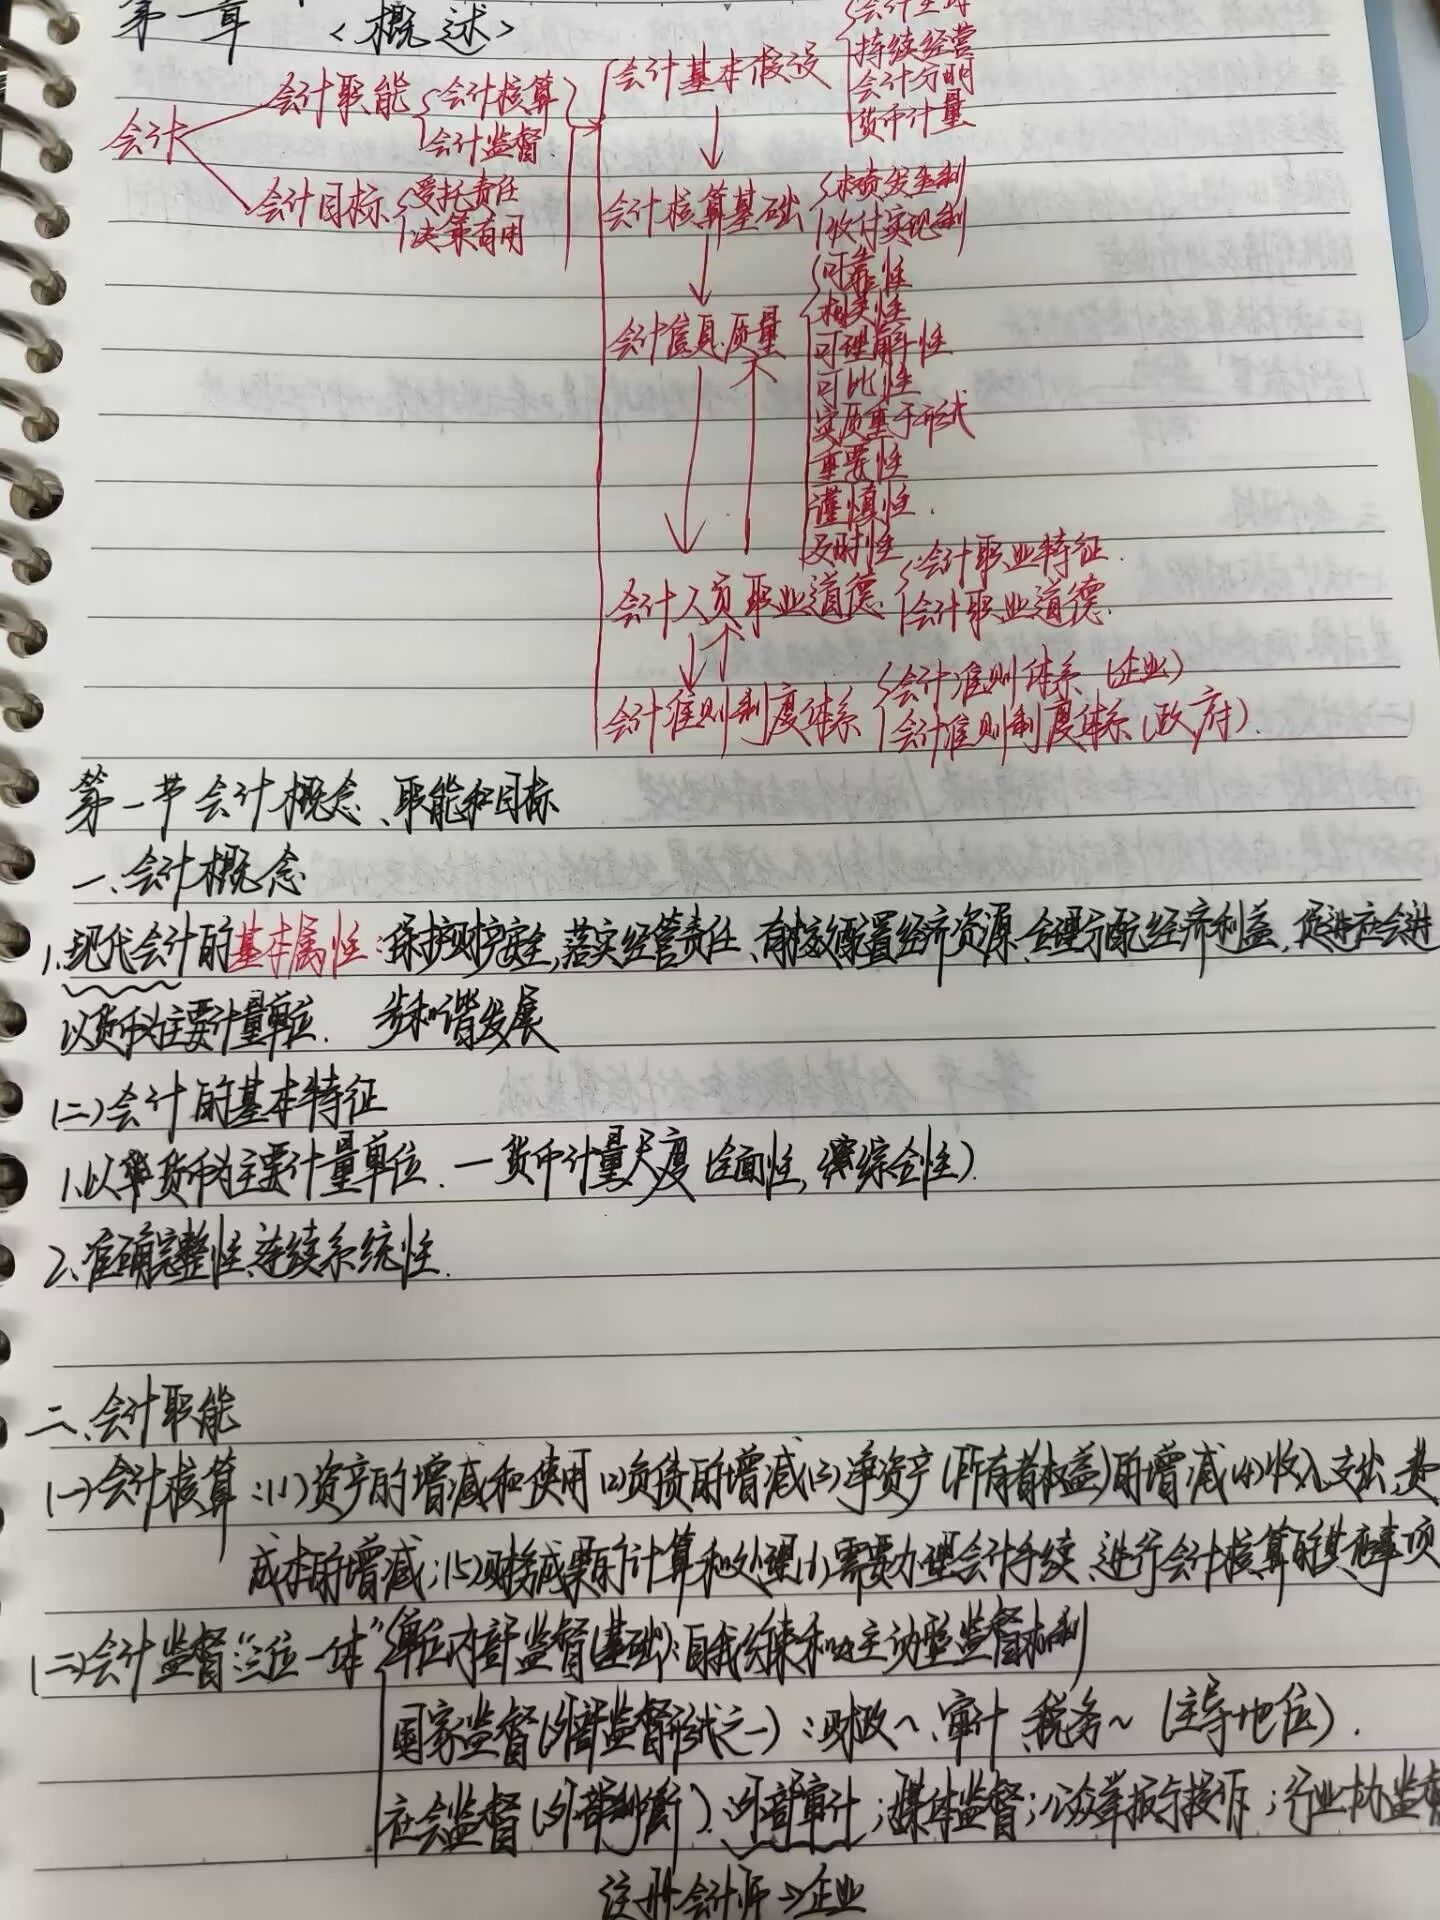 第一章 <概述>
会计
会计职能 会计核算
会计监督
会计目标 受托责任
决策有用
会计基本假设
会计主体
持续经营
会计分期
货币计量
会计核算基础
权责发生制
收付实现制
会计信息质量
可靠性
相关性
可理解性
可比性
实质重于形式
重要性
谨慎性.
及时性
会计人员职业道德
会计职业特征.
会计职业道德.
会计准则制度体系
会计准则体系(企业)
会计准则制度体系(政府).
第一节 会计概念、职能和目标
一、会计概念
1.现代会计的基本属性:保护财产安全,落实经管责任、有效配置经济资源、合理分配经济利益,促进社会进
以货币为主要计量单位. 步和谐发展
(二)会计的基本特征
1.以货币为主要计量单位.—货币计量尺度(全面性,综合性)
2.准确完整性、连续系统性.
二、会计职能
(一)会计核算:(1)资产的增减和使用(2)负债的增减(3)净资产(所有者权益)的增减(4)收入、支出、费
成本的增减;(5)财务成果的计算和处理(6)需要办理会计手续、进行会计核算的其他事项
(二)会计监督"三位一体" 单位内部监督(基础):自我约束和主动型监督机制
国家监督(外部监督形式之一):财政~、审计、税务~(主导地位).
社会监督(外部判断):外部审计;媒体监督;公众举报与投诉;行业协监督
注册会计师→企业